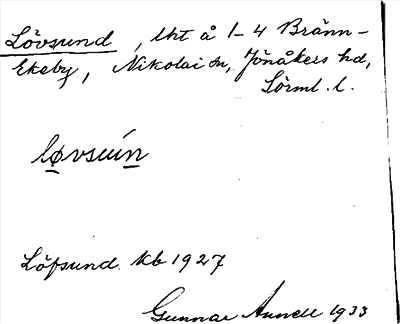 Lövsund, lht å 1–4 Bränn-
Ekeby, Nikolai sn, Jönåkers hd,
Sörml. l.
løvsuín
Löfsund. Kb 1927
Gunnar Annell 1933